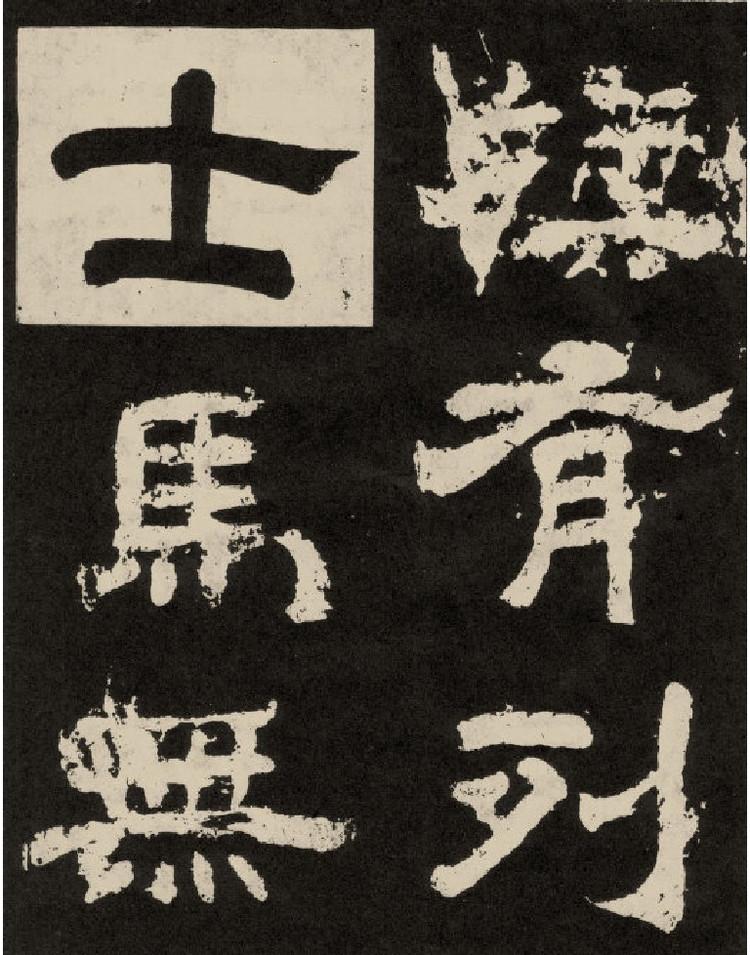 有列
士馬無